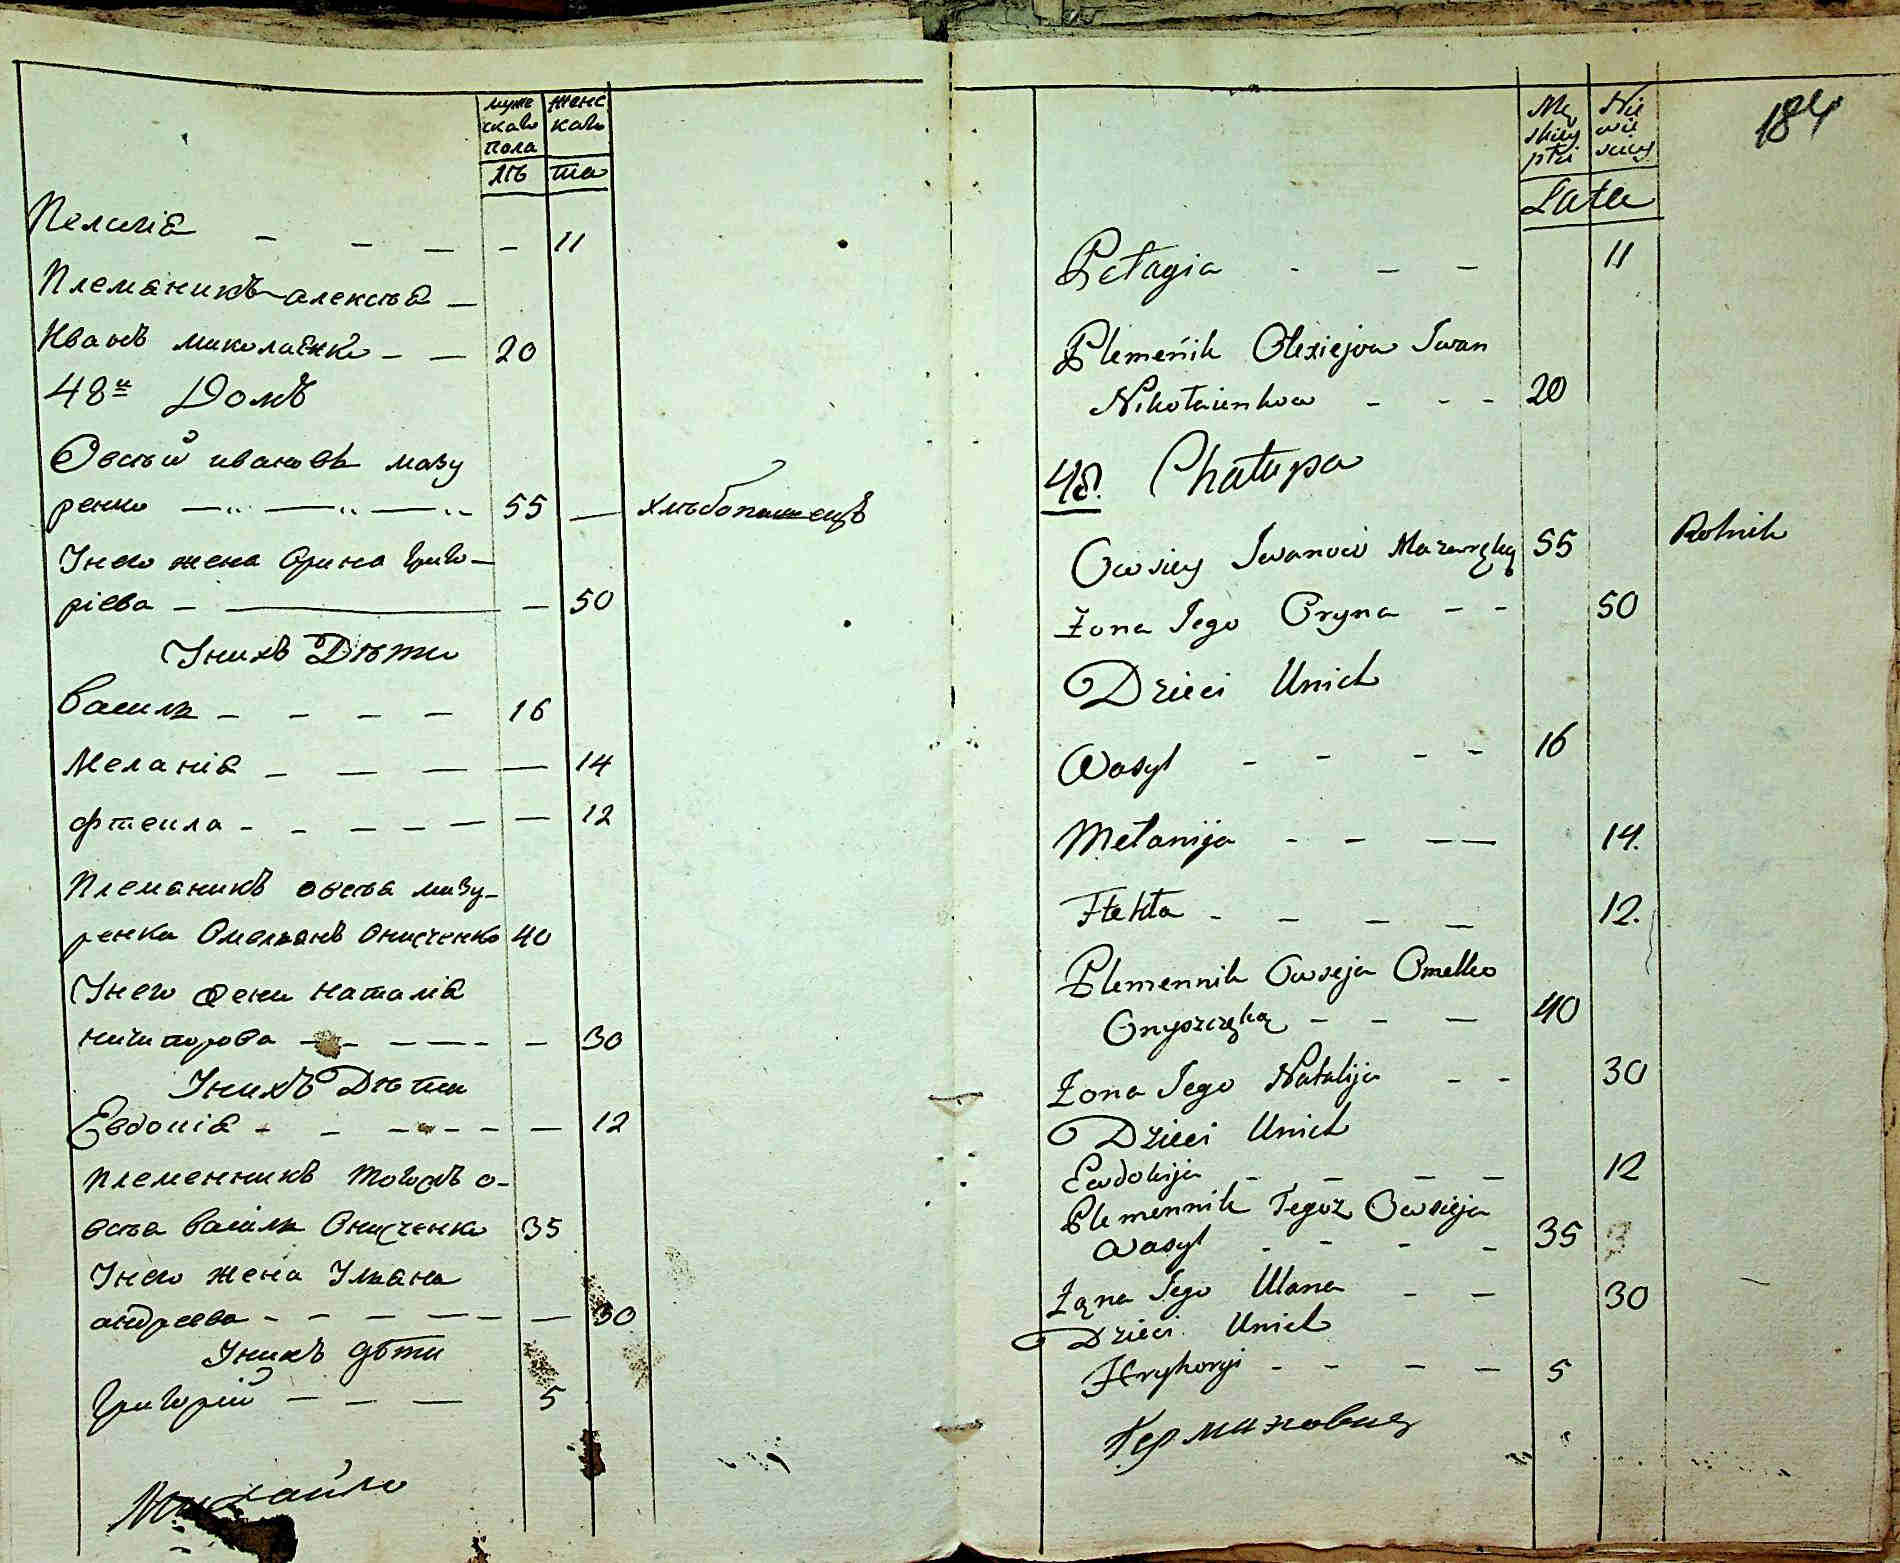 муже
скаго
пола
женс
каго
лѣ
та
Пелагіа - - - - 11
Племаникъ алексѣа -
Иванъ миколаенко - - 20
48й Домъ
Овсѣй ивановъ мазу
ренко - - - 55 - хлѣбопашецъ
Унего жена Орина григо-
рієва - - - 50
Унихъ Дѣти
Василь - - - - 16
Меланіа - - - - 14
фтекла - - - - - - 12
Племаникъ овсѣа мазу-
ренка Омельанъ Онисченко 40
Унего жена наталіа
ничипорова - - - - - - 30
Унихъ Дѣти
Евдокіа - - - - - - - 12
племенникъ тогожъ о-
всѣа василь Онисченко 35
Унего жена Ульана
андреева - - - - - - - 30
Унихъ дѣти
Григорій - - - 5
Михайло
184
Mę
skiey
płci
Nie
wie
sciey
Lata
Pełagia - - - 11
Plemeńik Olexiejow Iwan
Nikołaienkow - - - 20
48. Chałupa
Owsiey Iwanow Mazuręką 55 Rolnik
Żona Jego Oryna - - 50
Dzieci Unich
Wasyl - - - - 16
Mełanija - - - - 14.
Ftekła - - - - 12.
Plemennik Owseja Omelko
Onyszczęką - - - 40
Żona Jego Natalija - - 30
Dzieci Unich
Ewdokija - - - - 12
Plemennik Tegoż Owsieja
Wasyl - - - - 35
Żona Jego Ulana - - 30
Dzieci Unich
Hryhoryi - - - - 5